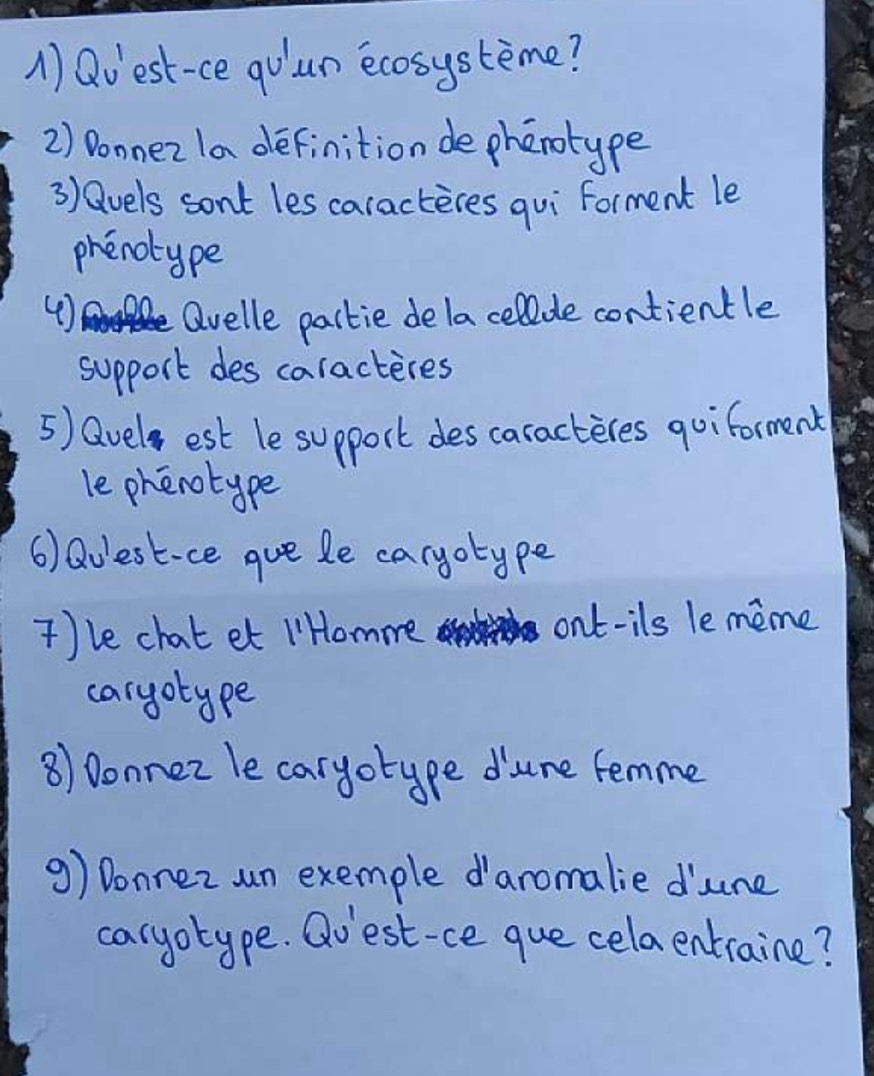 1) Qu'est-ce qu'un écosystème?
2) Donnez la définition de phénotype
3) Quels sont les caractères qui forment le
phénotype
4) Quelle partie de la cellule contient le
support des caractères
5) Quel est le support des caractères qui forment
le phénotype
6) Qu'est-ce que le caryotype
7) Le chat et l'Homme ont-ils le même
caryotype
8) Donnez le caryotype d'une femme
9) Donnez un exemple d'anomalie d'une
caryotype. Qu'est-ce que cela entraine?